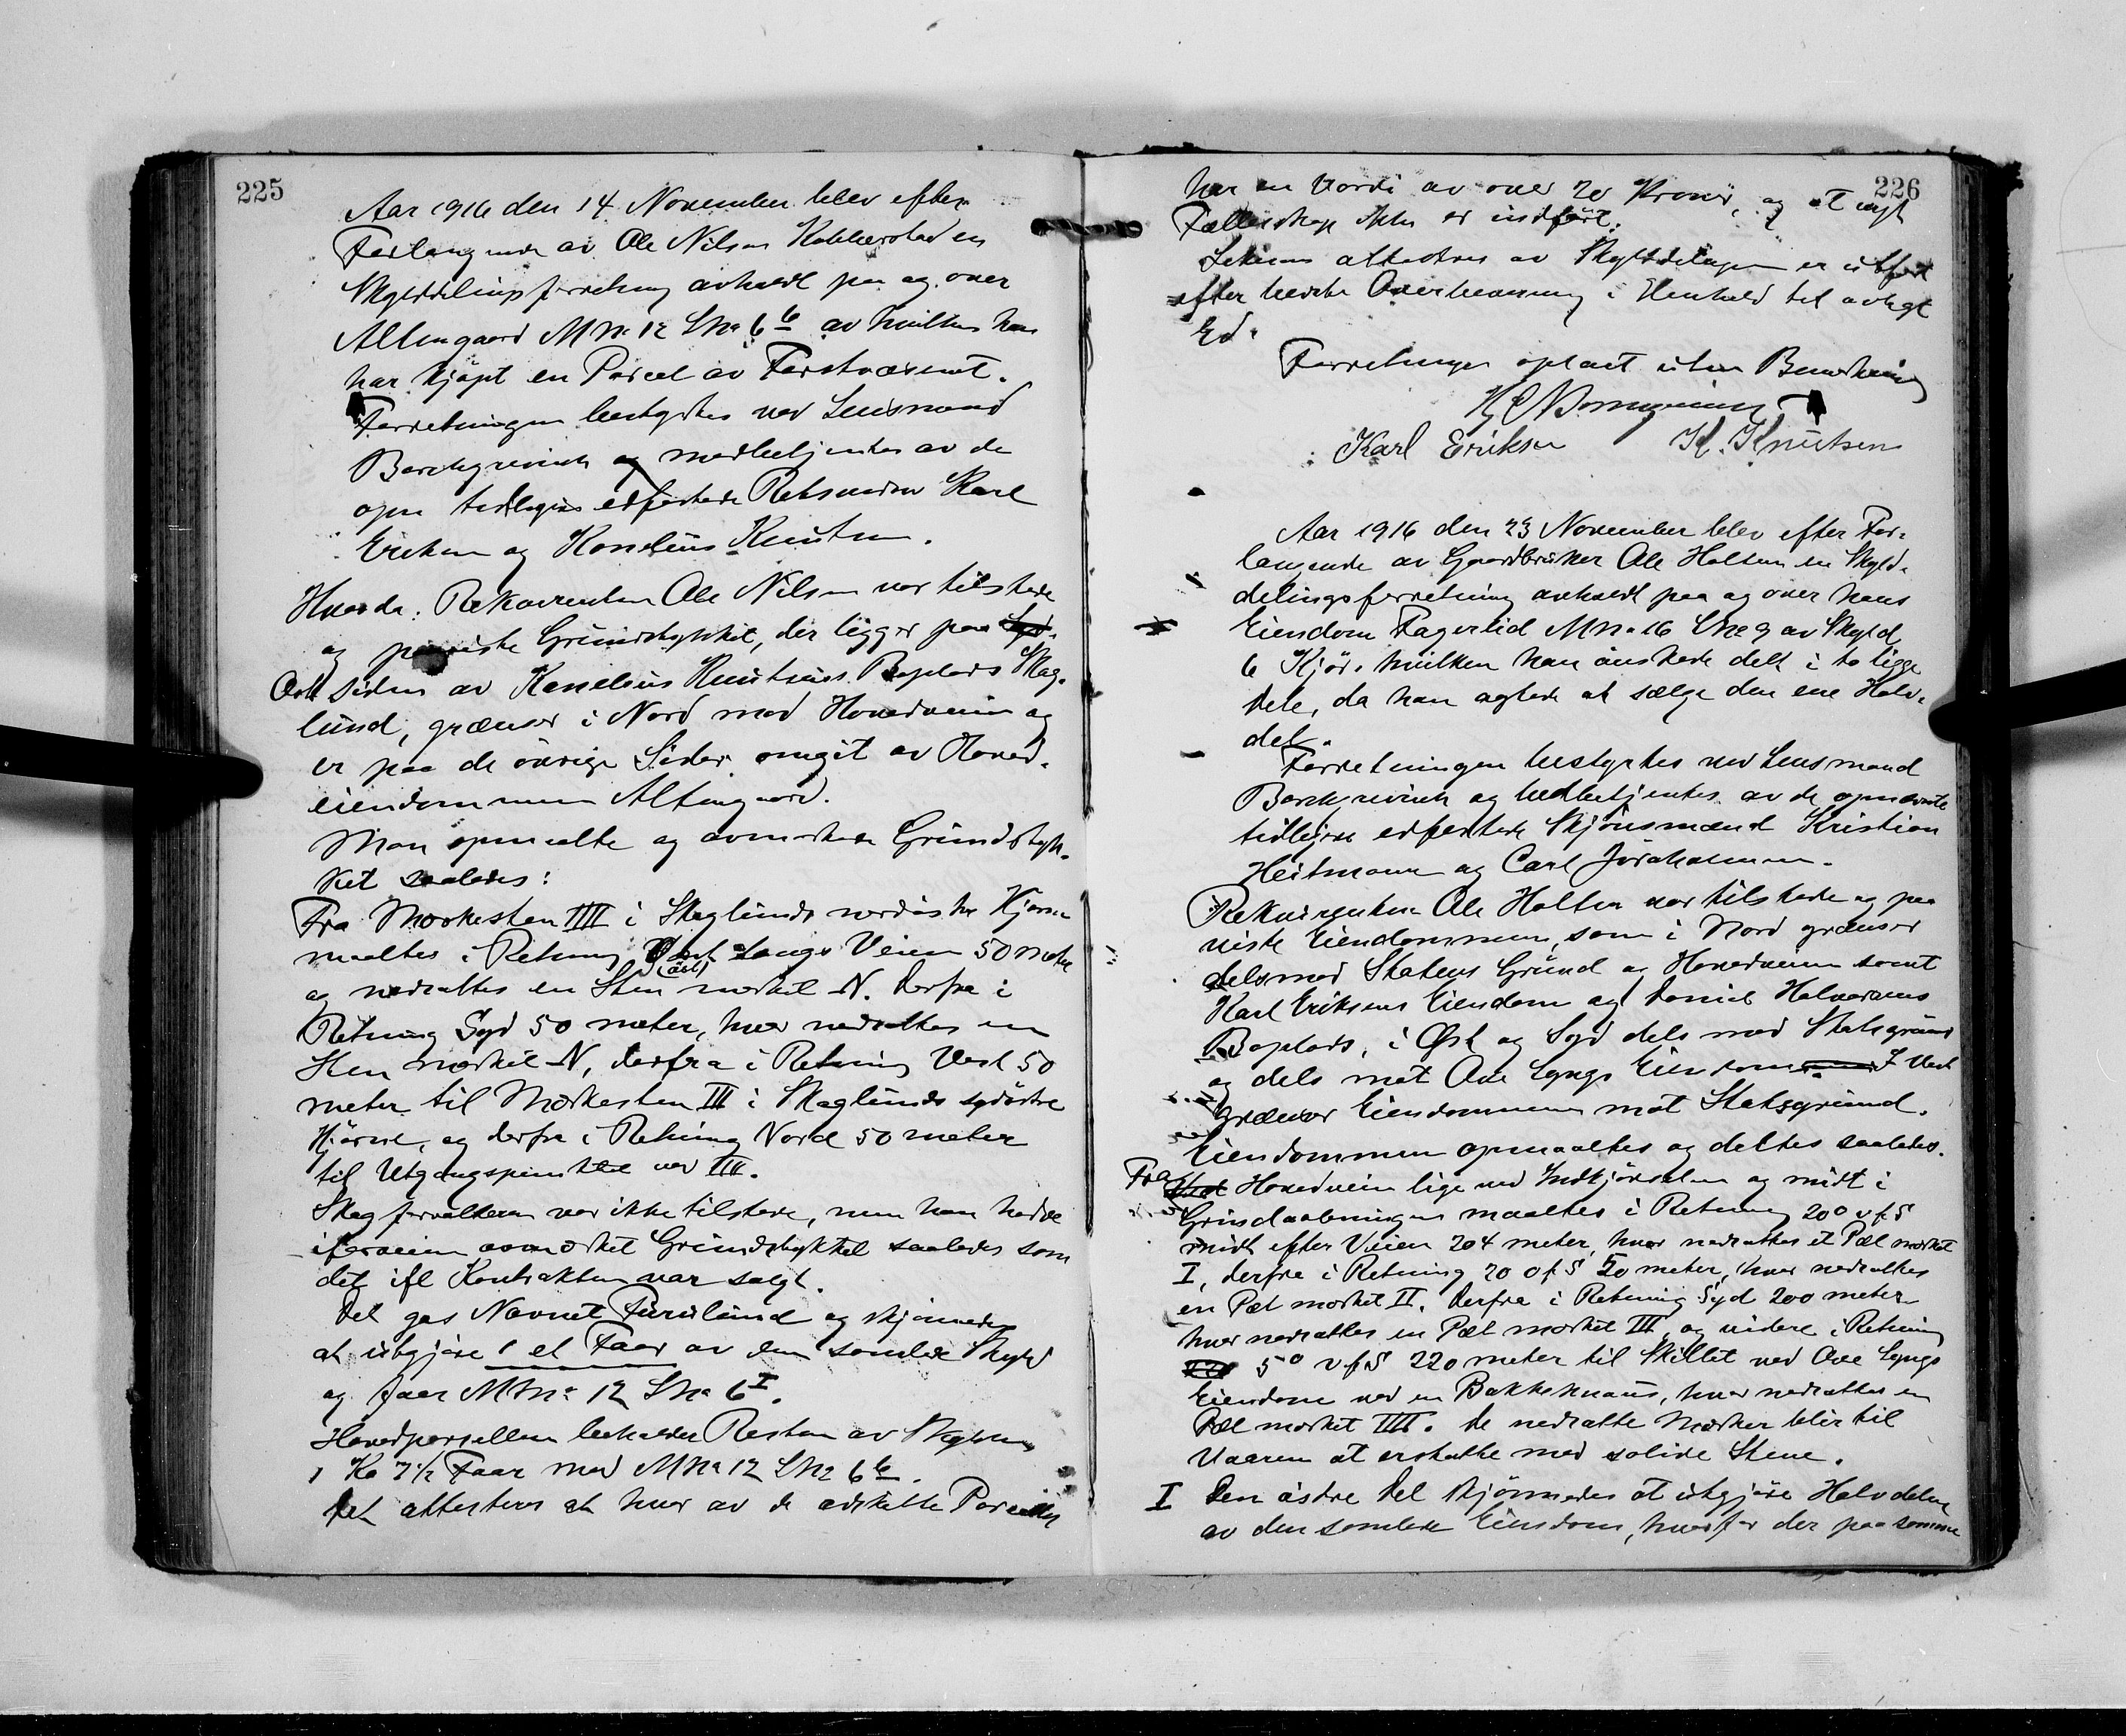 225
Aar 1916 den 14 November blev efter
Forlangende av Ole Nilsen Kobberstad en
Skylddelingsforretning avholdt paa og over
Altengaard M No 12 L No 6 6 av hvilken han
har kjöpt en Parcel av Forstvæsenet.
Forretningen bestyrtes ved Lensmand
Borchgrevink og medbetjentes av de
opn tidligere edfæstede Retsmænd Karl
Eriksen og Konelius Knutsen.
Hvorda: Rekvirenten Ole Nilsen var tilstede
og paaviste Grundstykket, der ligger paa Syd-
Öst siden av Konelius Knutsens Boplads Skog-
lund, grænser i Nord mod Hovedveien og
er paa de övrige Sider omgit av Hoved-
eiendommen Altengaard.
Man opmaalte og avmerkede Grundstyk-
ket saaledes:
Fra Merkesten IIII i Skoglunds nordöstre Hjörne
maaltes i Retning Vest (öst) langs Veien 50 meter
og nedsattes en Sten merket N. Derfra i
Retning Syd 50 meter, hvor nedsattes en
Sten merket N, derfra i Retning Vest 50
meter til Merkesten III i Skoglunds sydöstre
Hjörne, og derfra i Retning Nord 50 meter
til Utgangspunktet ved IIII.
Skogforvalteren var ikke tilstede, men han hadde
iforveien avmerket Grundstykket saaledes som
det ifl Kontrakten var solgt.
Det gas Navnet Furulund og skjönnedes
at utgjöre 1 et Faar av den samlede Skyld
og faar M No 12 L No 6 I.
Hovedparsellen beholder Resten av Skylden
1 Ko 7 1/2 Faar med M No 12 L No 6 6.
Det attesteres at hver av de adskilte Parceller
226
har en Værdi av over 20 Kroner, og at nyt
Fællesskap ikke er indfört.
Likesaa attesteres av Skylddelingen er utfört
efter bedste Overbevisning i Henhold til avlagt
Ed.
Forretningen oplæst uten Bemerkning
H C Borchgrevink
Karl Eriksen K. Knutsen
Aar 1916 den 23 November blev efter For-
langende av Gaardbruker Ole Holten en Skyld-
delingsforretning avholdt paa og over hans
Eiendom Fagerlid M No 16 L No 9 av Skyld
6 Kjör. hvilken han önskede delt i to lige
Dele, da han agtede at sælge den ene Halv-
del.
Forretningen bestyrtes ved Lensmand
Borchgrevink og medbetjentes av de opnævnte
tidligere edfæstede Skjönsmænd Kristian
Heitmann og Carl Johannesen.
Rekvirenten Ole Holten var tilstede og paa
viste Eiendommen, som i Nord grænser
dels mod Statens Grund og Hovedveien samt
Karl Eriksens Eiendom og Daniel Halvorsens
Boplads, i Öst og Syd dels mod Statsgrund
og dels mot Ove Lyngs Eiendom. I Vest
grænser Eiendommen mot Statsgrund.
Eiendommen opmaaltes og deltes saaledes.
Fra Hovedveien lige ved Indkjörselen og midt i
Grindaabningen maaltes i Retning 20° v f S
midt efter Veien 204 meter, hvor nedsattes et Pæl merket
I, derfra i Retning 20 o f S 50 meter, hvor nedsattes
en Pæl merket II. Derfra i Retning Syd 200 meter
hvor nedsattes en Pæl merket III, og videre i Retning
5° v f S 220 meter til Skillet ved Ove Lyngs
Eiendom ved en Bakkeknaus, hvor nedsattes en
Pæl merket IIII. De nedsatte Merker blir til
Vaaren at erstatte med solide Stene.
I Den östre Del skjönnedes at utgjöre Halvdelen
av den samlede Eiendom, hvorfor der paa samme